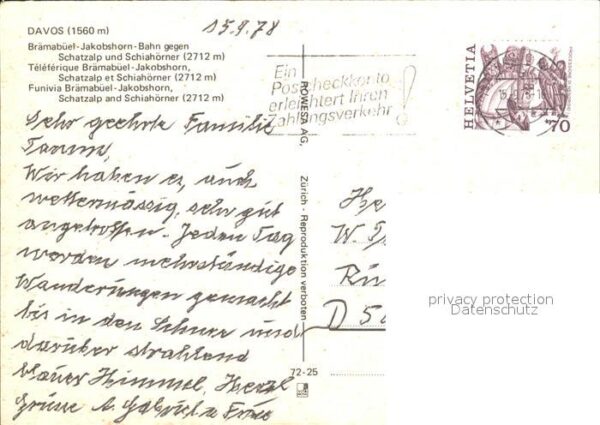 DAVOS (1560 m)
Brämabüel-Jakobshorn-Bahn gegen
Schatzalp und Schiahörner (2712 m)
Téléférique Brämabüel-Jakobshorn,
Schatzalp et Schiahörner (2712 m)
Funivia Brämabüel-Jakobshorn,
Schatzalp and Schiahörner (2712 m)
15.9.78
Ein
Postcheckkonto
erleichtert Ihren
Zahlungsverkehr!
HELVETIA
70
Sehr geehrte Familie
Wir haben es, auch
wettermässig, sehr gut
angetroffen. Jeden Tag
werden mehrständige
Wanderungen gemacht
bis in den Schnee und
darüber strahlend
blauer Himmel. Herzl.
Grüsse
ROWESA AG, Zürich - Reproduktion verboten
72-25
W.
D 5
privacy protection
Datenschutz